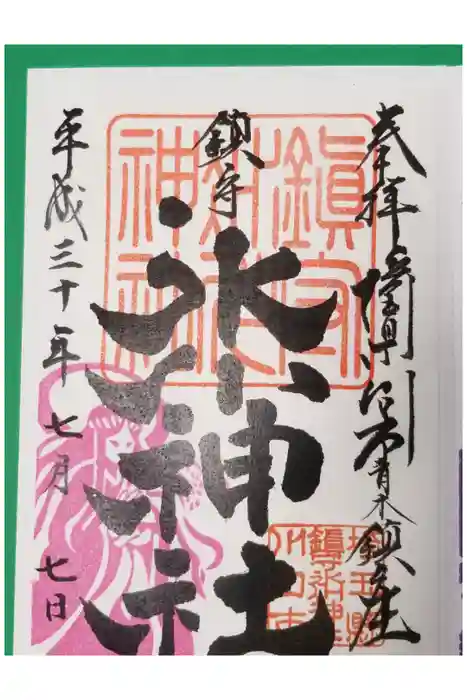 奉拝 埼玉県川口市青木鎮座
鎮守
氷川神社
平成三十年七月七日
鎮守
氷川
神社
埼玉県
鎮守氷川神
川口市